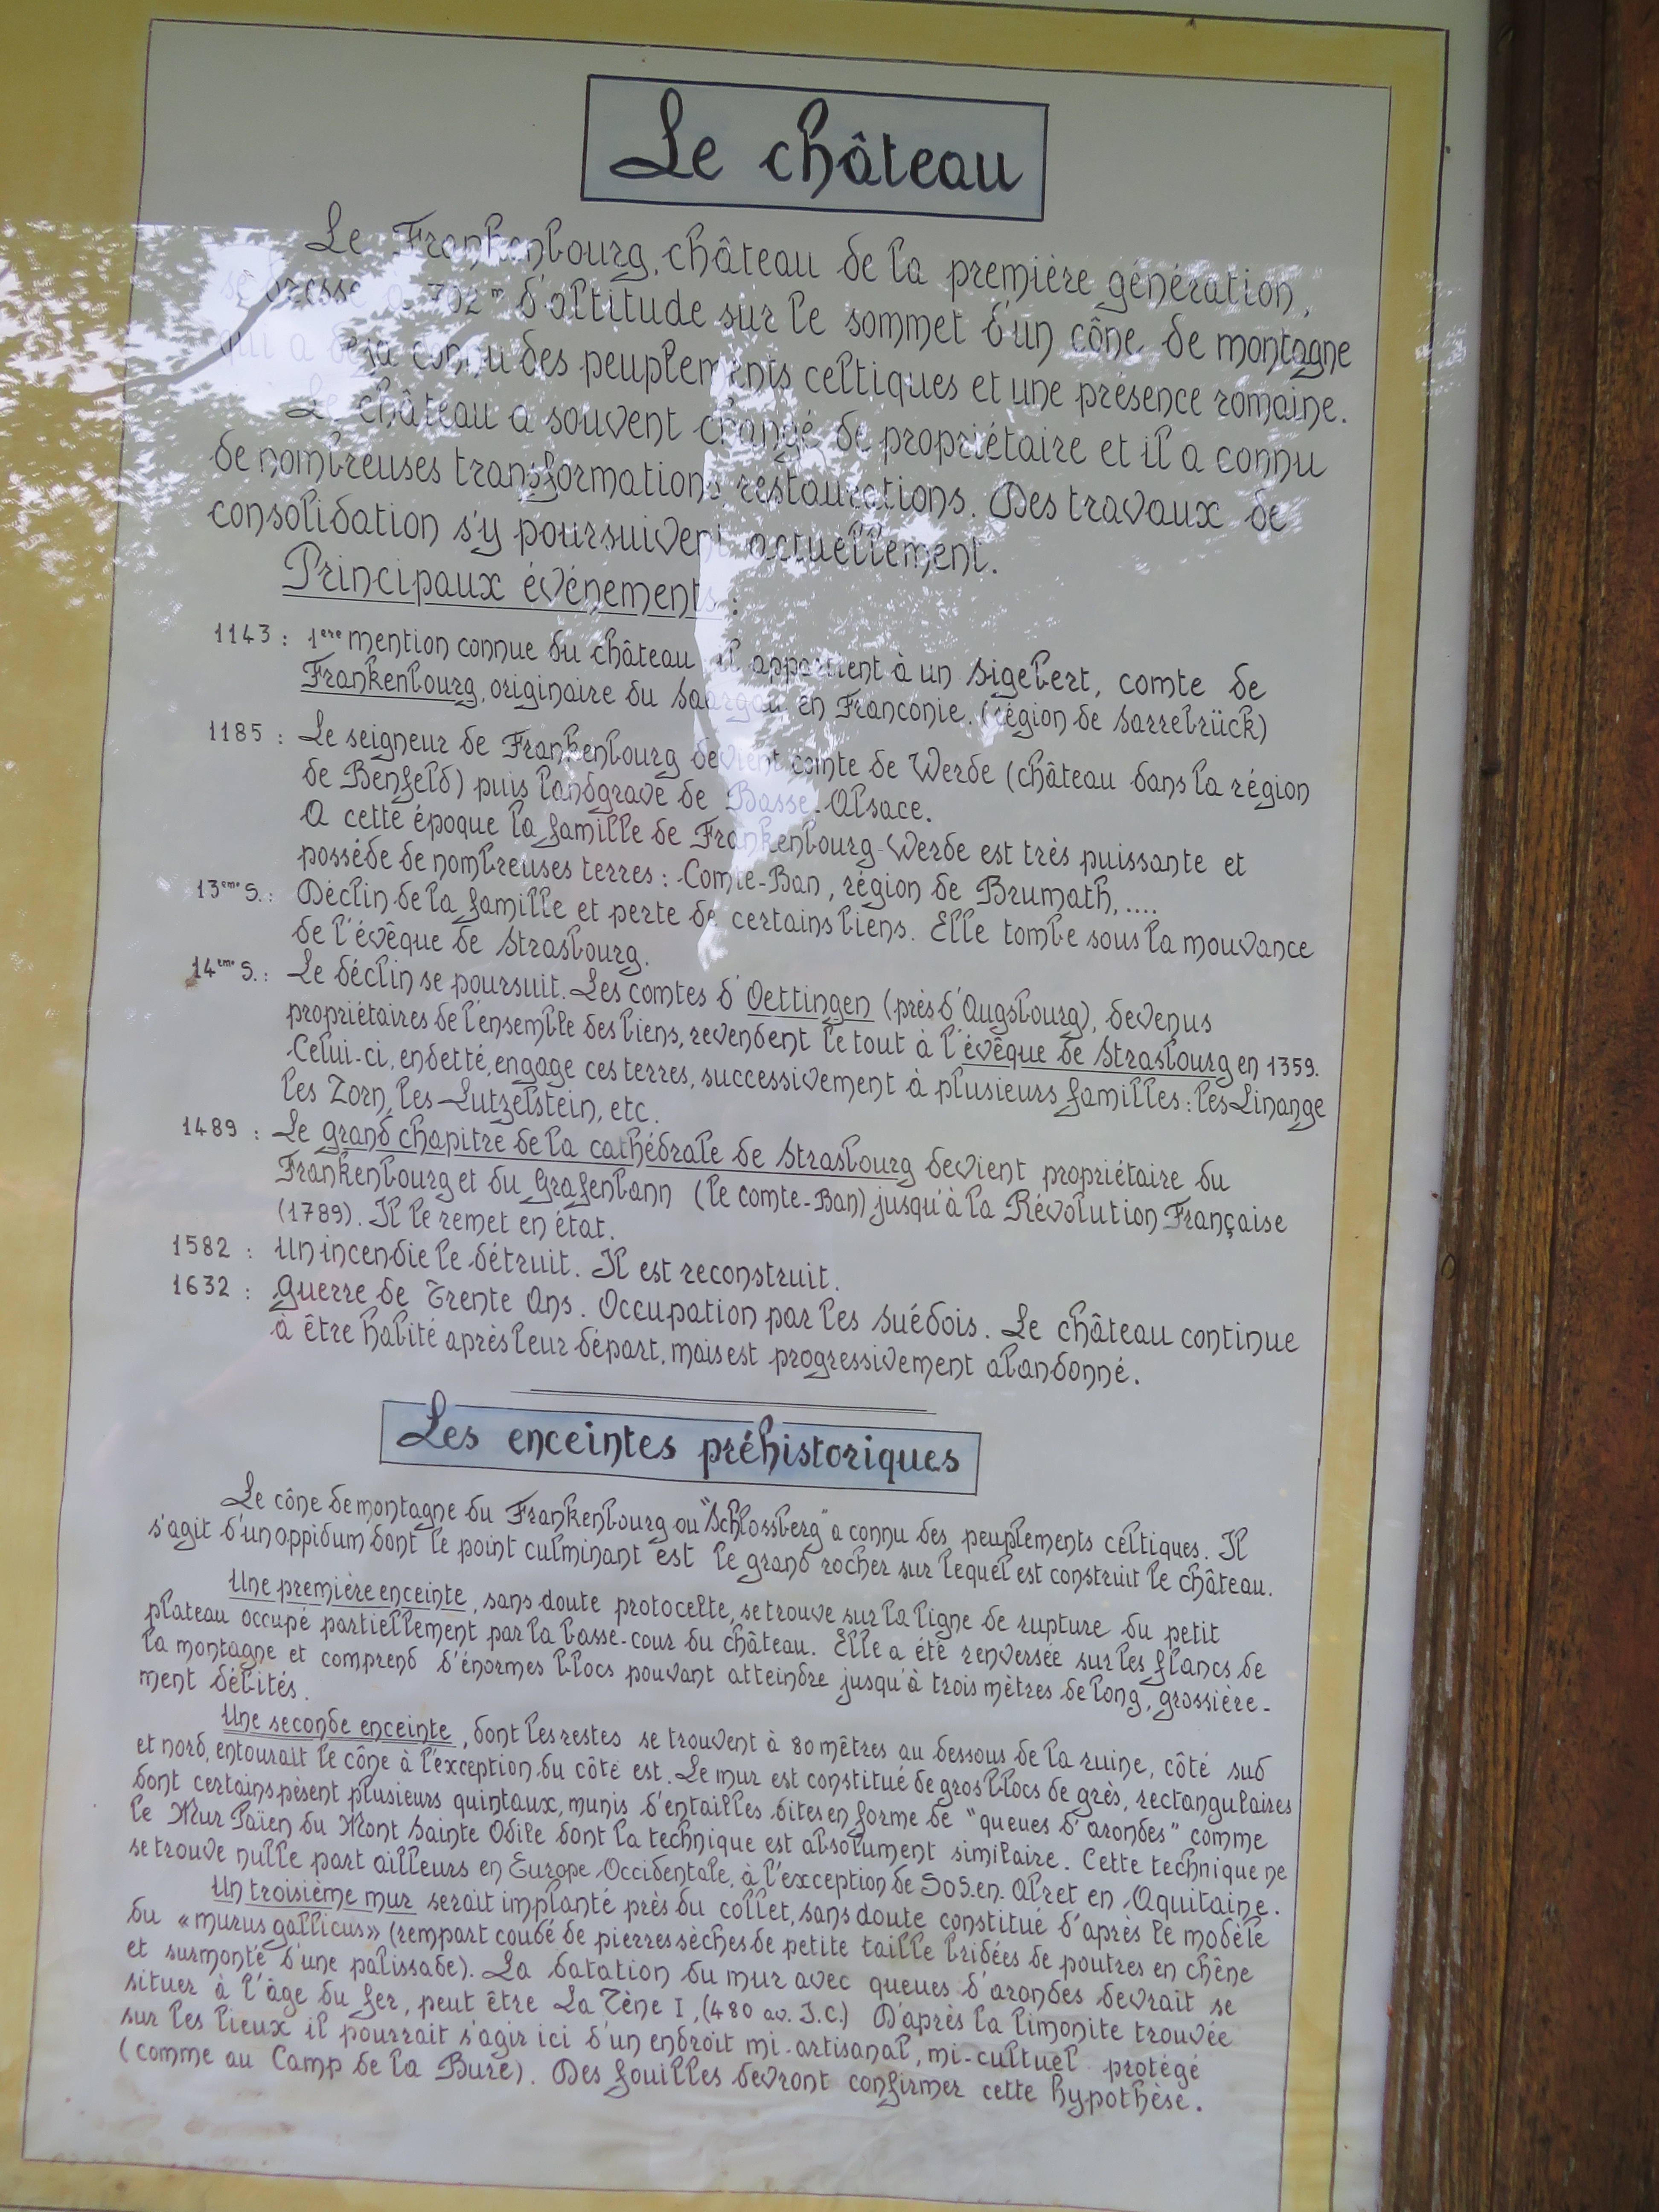 Le château
Le Frankenbourg, château de la première génération,
se dresse à 702m d'altitude sur le sommet d'un cône de montagne
qui a déjà connu des peuplements celtiques et une présence romaine.
Le château a souvent changé de propriétaire et il a connu
de nombreuses transformations restaurations. Des travaux de
consolidation s'y poursuivent actuellement.
Principaux événements :
1143 : 1ère mention connue du château il appartient à un Sigebert, comte de
Frankenbourg, originaire du Saargau en Franconie. (région de Sarrebrück)
1185 : Le seigneur de Frankenbourg devient comte de Werde (château dans la région
de Benfeld) puis landgrave de Basse-Alsace.
A cette époque la famille de Frankenbourg-Werde est très puissante et
possède de nombreuses terres : Comte-Ban, région de Brumath, ....
13ème S. : Déclin de la famille et perte de certains biens. Elle tombe sous la mouvance
de l'évêque de Strasbourg.
14ème S. : Le déclin se poursuit. Les comtes d'Oettingen (près d'Augsbourg), devenus
propriétaires de l'ensemble des biens, revendent le tout à l'évêque de Strasbourg en 1359.
Celui-ci, endetté, engage ces terres, successivement à plusieurs familles : les Linange
les Zorn, les Lutzelstein, etc.
1489 : Le grand chapitre de la cathédrale de Strasbourg devient propriétaire du
Frankenbourg et du Grafenbann (le comte-Ban) jusqu'à la Révolution Française
(1789). Il le remet en état.
1582 : Un incendie le détruit. Il est reconstruit.
1632 : Guerre de Trente Ans. Occupation par les Suédois. Le château continue
à être habité après leur départ, mais est progressivement abandonné.
Les enceintes préhistoriques
Le cône de montagne du Frankenbourg ou "Schlossberg" a connu des peuplements celtiques. Il
s'agit d'un oppidum dont le point culminant est le grand rocher sur lequel est construit le château.
Une première enceinte, sans doute protocelte, se trouve sur la ligne de rupture du petit
plateau occupé partiellement par la basse-cour du château. Elle a été renversée sur les flancs de
la montagne et comprend d'énormes blocs pouvant atteindre jusqu'à trois mètres de long, grossière-
ment débités.
Une seconde enceinte, dont les restes se trouvent à 80 mêtres au dessous de la ruine, côté sud
et nord, entourait le cône à l'exception du côté est. Le mur est constitué de gros blocs de grès, rectangulaires
dont certains pèsent plusieurs quintaux, munis d'entailles dites en forme de "queues d'arondes" comme
le Mur Païen du Mont Sainte Odile dont la technique est absolument similaire. Cette technique ne
se trouve nulle part ailleurs en Europe Occidentale, à l'exception de SOS.en.Albret en Aquitaine.
Un troisième mur serait implanté près du collet, sans doute constitué d'après le modèle
du «murus gallicus» (rempart coudé de pierres sèches de petite taille bridées de poutres en chêne
et surmonté d'une palissade). La datation du mur avec queues d'arondes devrait se
situer à l'âge du fer, peut être La Tène I, (480 av. J.C.) D'après la limonite trouvée
sur les lieux il pourrait s'agir ici d'un endroit mi-artisanal, mi-cultuel protégé
(comme au Camp de la Bure). Des fouilles devront confirmer cette hypothèse.